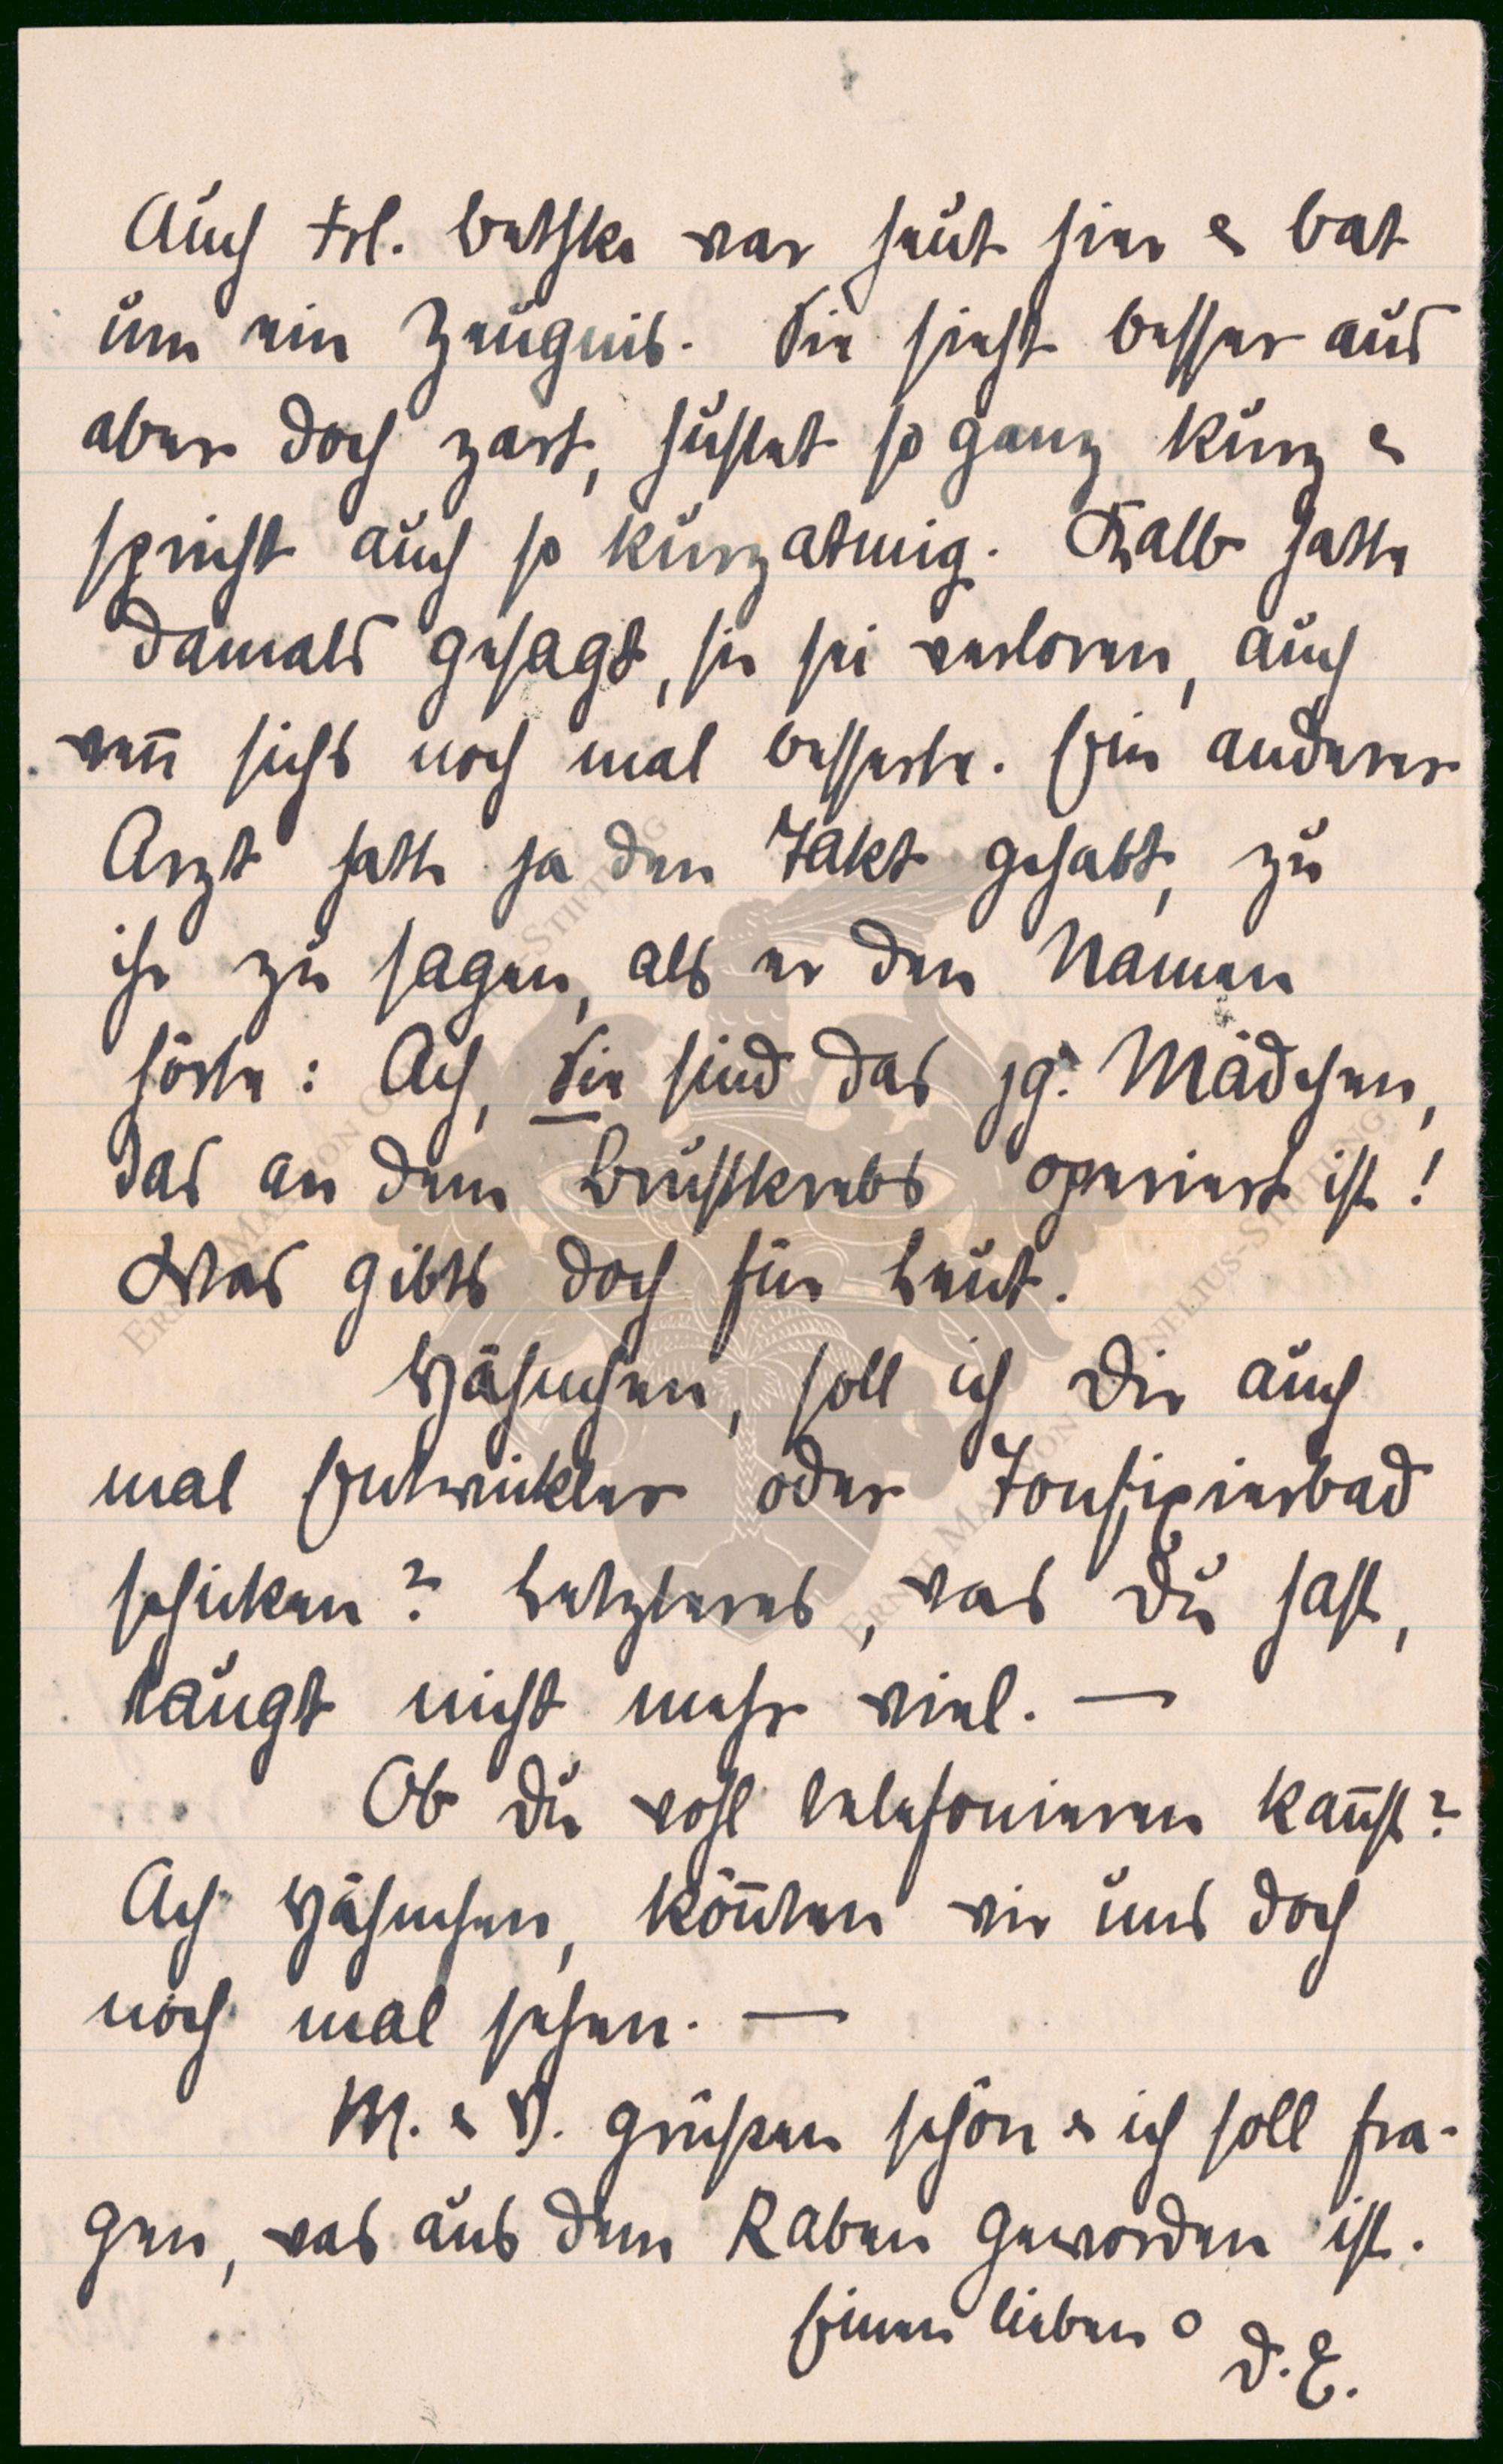 Auch Frl. Bethke war heut hier & bat
um ein Zeugnis. Sie sieht besser aus
aber doch zart, hüstelt so ganz kurz &
spricht auch so kurzatmig. Kalb hatte
damals gesagt, sie sei verloren, auch
weñ sichs noch mal besserte. Ein anderer
Arzt hatte ja den Takt gehabt, zu
ihr zu sagen, als er den Namen
hörte: Ach, Sie sind das jg. Mädchen,
das an dem Brustkrebs operiert ist!
Was gibts doch für Leut.
Hähnchen, soll ich Dir auch
mal Entwickler oder Tonfixierbad
schicken? Letzteres, was Du hast,
taugt nicht mehr viel. —
Ob Du wohl telefonieren kañst?
Ach Hähnchen, köñten wir uns doch
noch mal sehen. —
M. & V. grüßen schön & ich soll fra-
gen, was aus dem Raben geworden ist.
Einen lieben o
D. E.
ERNST MARTON CORNELIUS-STIFTUNG